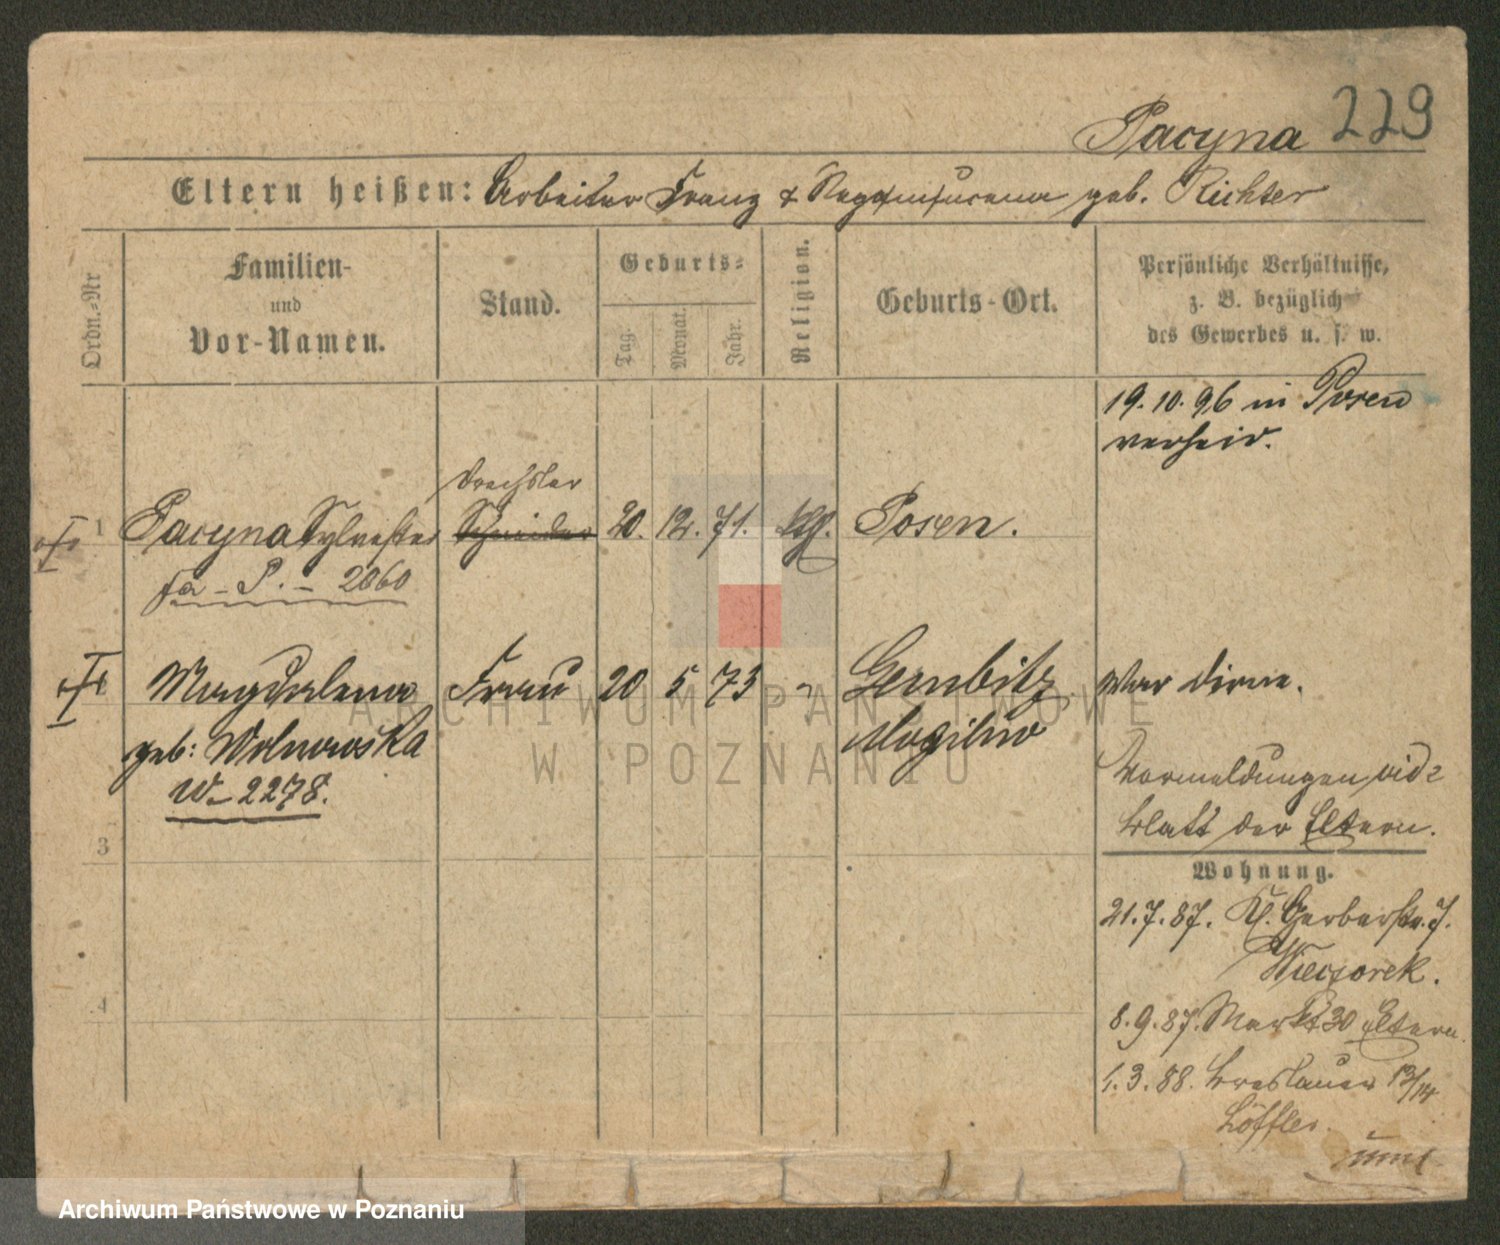 Pacyna 229
Eltern heißen: Arbeiter Franz & geb. Richter
Ordn.-Nr
Familien-
und
Vor-Namen.
Stand.
Geburts-
Tag.
Monat.
Jahr.
Religion.
Geburts-Ort.
Persönliche Verhältnisse,
z. B. bezüglich
des Gewerbes u. s. w.
19.10.96 in Posen
verheir.
Drechsler
1 Pacyna Sylvester Schneider 20. 12. 71. kth. Posen.
fa - P. - 2060
Magdalena Frau 20 5 73 " Gembitz War Dirne.
geb: Wolnowska Mogilno
W- 2278.
Vormeldungen vid:
blatt der Eltern.
3
Wohnung.
21.7.87. Kl. Gerberstr. 7.
Wieczorek.
4
8.9.87. Markt 30 Eltern.
1.3.88. Breslauer 13/14
Löffler.
ARCHIWUM PAŃSTWOWE
W POZNANIU
Archiwum Państwowe w Poznaniu